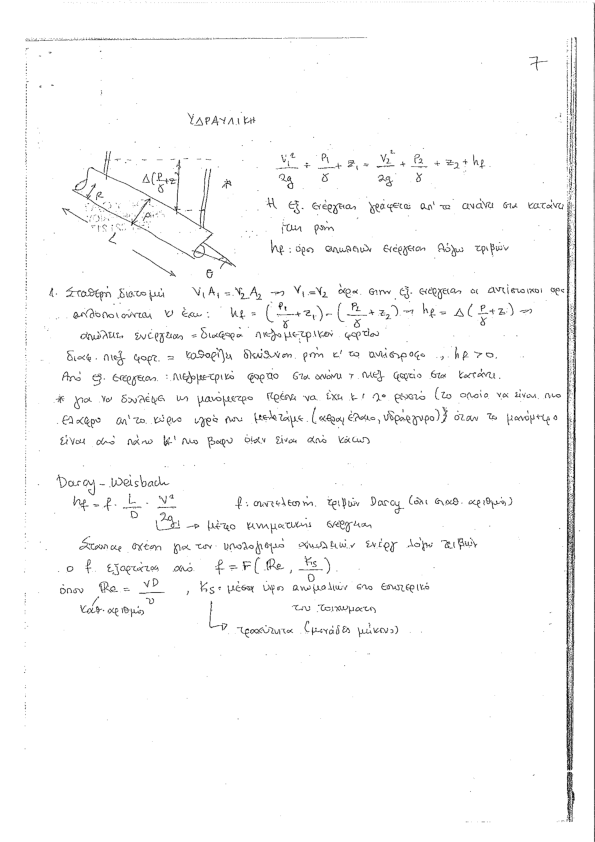 7
ΥΔΡΑΥΛΙΚΗ
Δ(P/γ+z) *
R A
L
θ
V₁²/2g + P₁/γ + z₁ = V₂²/2g + P₂/γ + z₂ + hf
Η εξ. ενέργειας γράφεται απ' τα ανάντι στα κατάντι
της ροής
hf: όρος απωλειών ενέργειας λόγω τριβών
1. Σταθερή διατομή V₁A₁ = V₂A₂ → V₁ = V₂ άρα στην εξ. ενέργειας οι αντίστοιχοι όροι
απλοποιούνται κ' έχω: hf = (P₁/γ + z₁) - (P₂/γ + z₂) → hf = Δ(P/γ + z) →
απώλειες ενέργειας = διαφορά πιεζομετρικού φορτίου
διαφ. πιεζ. φορτ. = καθορίζει διεύθυνση ροής κ' το αντίστροφο, hf > 0.
Από εξ. ενέργειας: πιεζομετρικό φορτίο στα ανάντι > πιεζ. φορτίο στα κατάντι.
* για να δουλέψει το μανόμετρο πρέπει να έχει κ' 2ο ρευστό (το οποίο να είναι πιο
ελαφρύ απ' το κύριο υγρό που μελετάμε (αέρας, έλαιο, υδράργυρο) όταν το μανόμετρο
είναι από πάνω κ' πιο βαρύ όταν είναι από κάτω
Darcy - Weisbach
hf = f · L/D · V²/2g f: συντελεστής τριβών Darcy (όχι σταθ. αριθμός)
→ μέτρο κινηματικής ενέργειας
σχέση για τον υπολογισμό απωλειών ενέργ λόγω τριβών
ο f εξαρτάται από f = F(Re, ks/D)
όπου Re = VD/ν, ks = μέσο ύψος ανωμαλιών στο εσωτερικό
καθ. αριθμός του τοιχώματος
τραχύτητα (μονάδες μήκους)